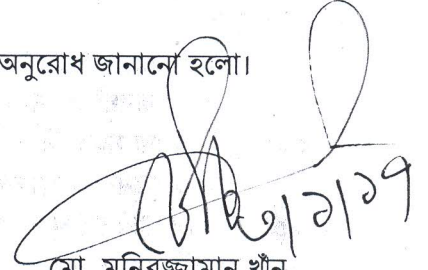 অনুরোধ জানানো হলো।
মো. মনিরুজ্জামান খাঁন